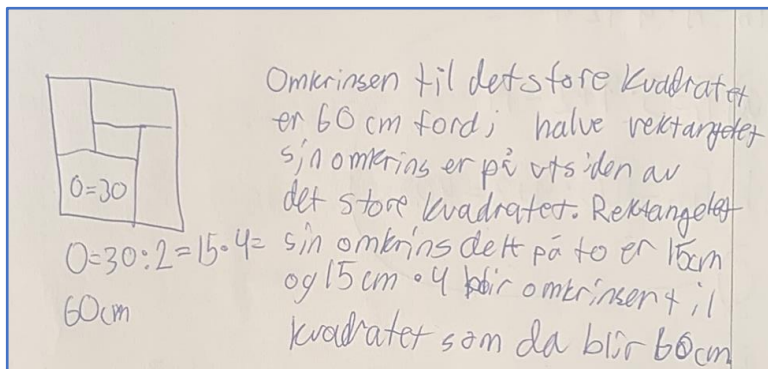 Omkrinsen til det store kvadratet
er 60 cm fordi halve rektangelet
sin omkrins er på utsiden av
det store kvadratet. Rektangelet
sin omkrins delt på to er 15cm
og 15 cm • 4 blir omkrinsen til
kvadratet som da blir 60cm
O=30
O=30:2=15•4=
60cm